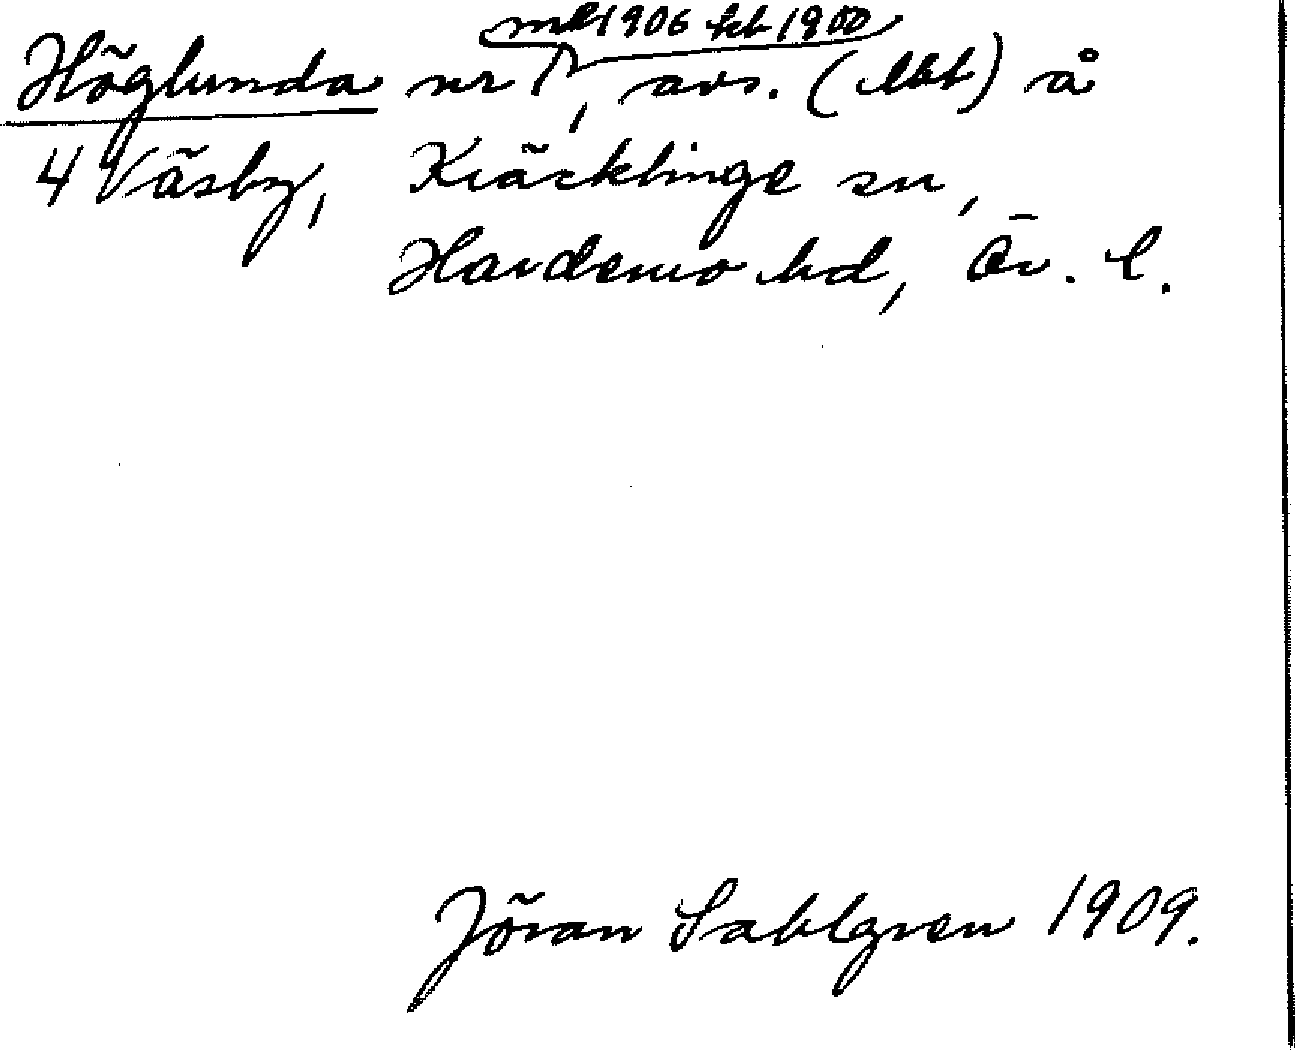 ml 1906 kb 1900
Höglunda nr 1, avs. (lht) å
4 Väsby, Kräcklinge sn,
Hardemo hd, Ör. l.
Jöran Sahlgren 1909.